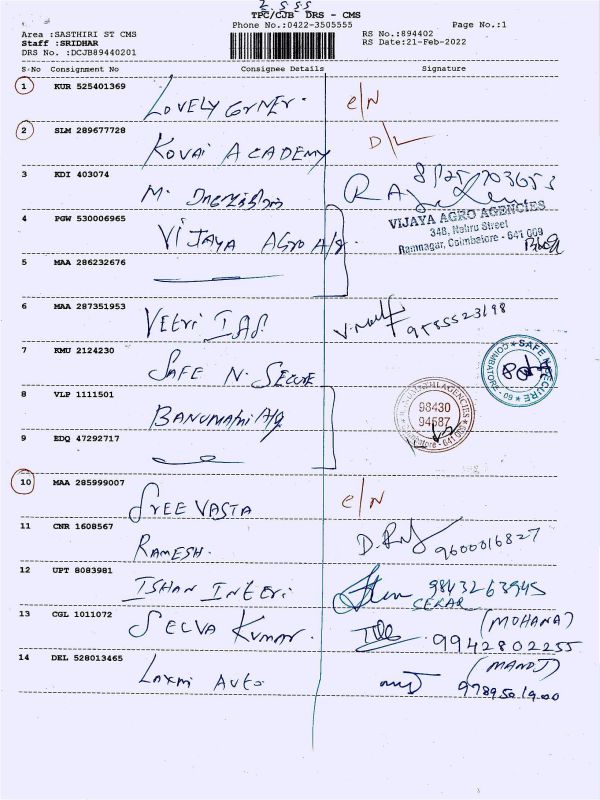 TPC/CJB DRS - CMS
Phone No.:0422-3505555
Page No.:1
Area :SASTHIRI ST CMS
Staff :SRIDHAR
DRS No. :DCJB89440201
RS No.:894402
RS Date:21-Feb-2022
S.No Consignment No Consignee Details Signature
1 KUR 525401369 LOVELY CORNER. e/N
2 SLM 289677728 KOVAI ACADEMY D/L
3 KDI 403074 M.
4 PGW 530006965 VIJAYA AGRO A/g
VIJAYA AGRO AGENCIES
348, Nehru Street
Ramnagar, Coimbatore - 641 009
5 MAA 286232676
6 MAA 287351953 VETRI IAS 9585523198
7 KMU 2124230 SAFE N. SECURE
SAFE N SECURE COIMBATORE
8 VLP 1111501 BANUMATHI A/g
98430
94587
9 EDQ 47292717
10 MAA 285999007 SREE VASTA e/N
11 CNR 1608567 RAMESH. 9600016827
12 UPT 8083981 ISHAN INTERI. 9843263945
SEKAR
13 CGL 1011072 SELVA KUMAR. (MOHANA)
9942802255
14 DEL 528013465 Laxmi Auto (MANOJ)